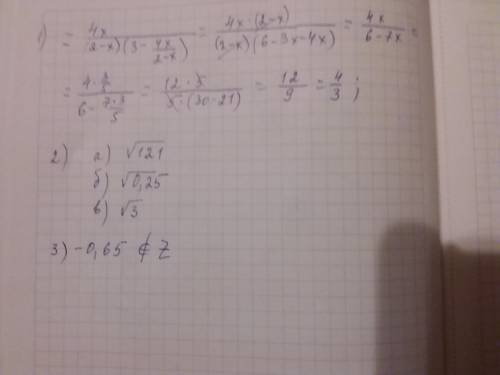 1) = 4x / ((2-x)(3 - 4x/(2-x))) = 4x·(2-x) / ((2-x)(6-3x-4x)) = 4x / (6-7x) =
= (4·3/5) / (6 - 7·3/5) = 12·5 / (5·(30-21)) = 12/9 = 4/3 ;
2) а) √121
б) √0,25
в) √3
3) -0,65 ∉ Z